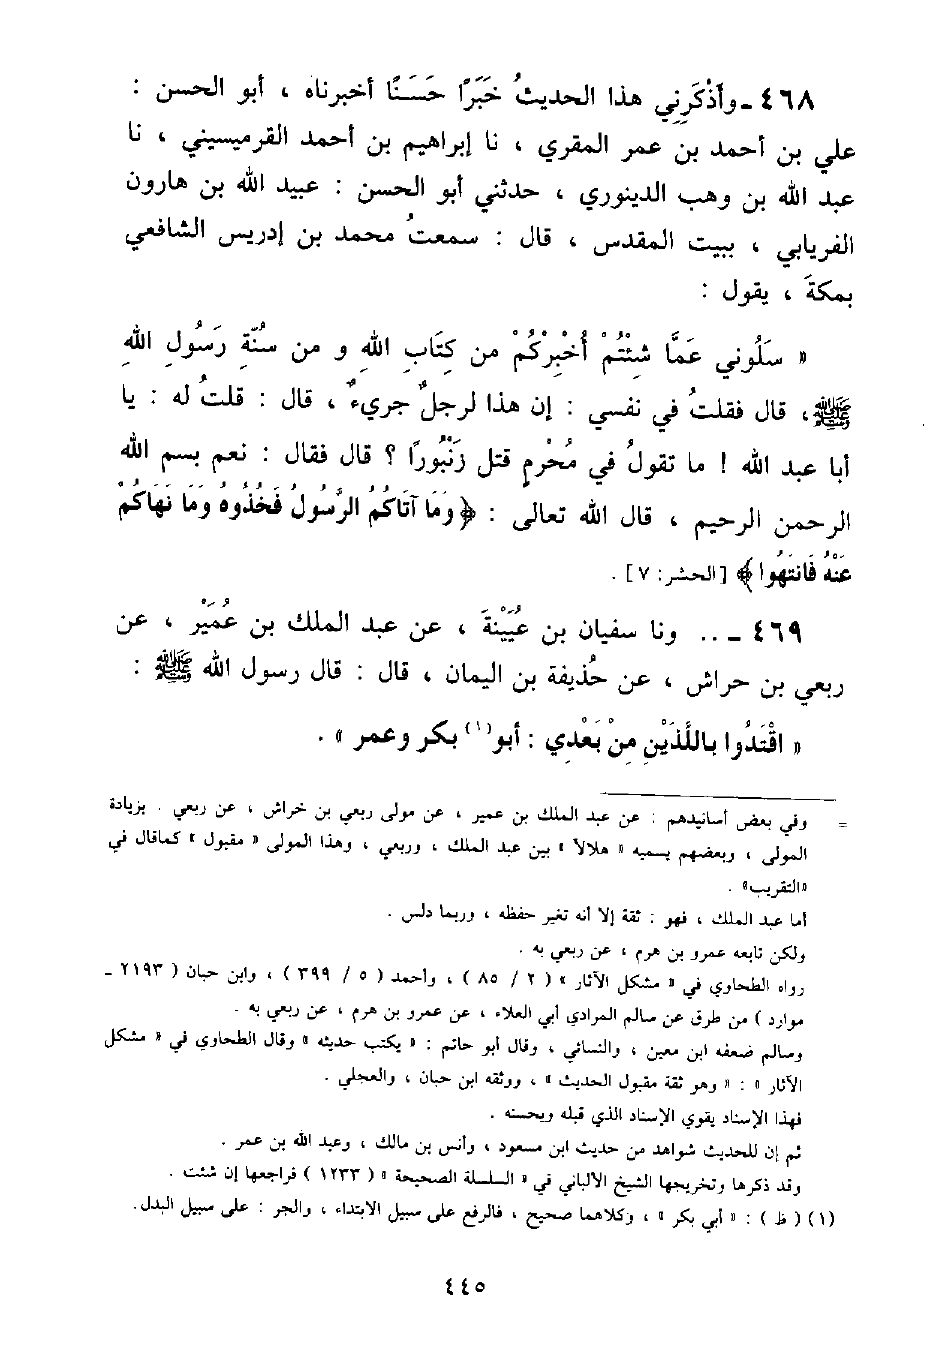 ٤٦٨ ـ وأَذْكَرَنِي هذا الحديثُ خَبَرًا حَسَنًا أخبرناه ، أبو الحسن :
علي بن أحمد بن عمر المقري ، نا إبراهيم بن أحمد القرميسيني ، نا
عبد الله بن وهب الدينوري ، حدثني أبو الحسن : عبيد الله بن هارون
الفريابي ، ببيت المقدس ، قال : سمعتُ محمد بن إدريس الشافعي
بمكةَ ، يقول :
« سَلُوني عَمَّا شِئْتُمْ أُخْبِرْكُمْ من كِتَابِ اللهِ و من سُنَّةِ رَسُولِ اللهِ
ﷺ ، قال فقلتُ في نفسي : إن هذا لرجلٌ جريءٌ ، قال : قلتُ له : يا
أبا عبد الله ! ما تقولُ في مُحْرِمٍ قتل زَنْبُورًا ؟ قال فقال : نعم بسم الله
الرحمن الرحيم ، قال الله تعالى : ﴿وَمَا آتَاكُمُ الرَّسُولُ فَخُذُوهُ وَمَا نَهَاكُمْ
عَنْهُ فَانتَهُوا﴾ [الحشر: ٧] .
٤٦٩ ـ .. ونا سفيان بن عُيَيْنَةَ ، عن عبد الملك بن عُمَيْر ، عن
ربعي بن حراش ، عن حُذيفة بن اليمان ، قال : قال رسول الله ﷺ :
« اقْتَدُوا باللَّذَيْنِ مِنْ بَعْدِي : أبو(١) بكر وعمر » .
= وفي بعض أسانيدهم : عن عبد الملك بن عمير ، عن مولى ربعي بن خراش ، عن ربعي . بزيادة
المولى ، وبعضهم يسميه « هلالاً » بين عبد الملك ، وربعي ، وهذا المولى « مقبول » كماقال في
«التقريب» .
أما عبد الملك ، فهو : ثقة إلا أنه تغير حفظه ، وربما دلس .
ولكن تابعه عمرو بن هرم ، عن ربعي به .
رواه الطحاوي في « مشكل الآثار » ( ٢ / ٨٥ ) ، وأحمد ( ٥ / ٣٩٩ ) ، وابن حبان ( ٢١٩٣ ـ
موارد ) من طرق عن سالم المرادي أبي العلاء ، عن عمرو بن هرم ، عن ربعي به .
وسالم ضعفه ابن معين ، والنسائي ، وقال أبو حاتم : « يكتب حديثه » وقال الطحاوي في « مشكل
الآثار » : « وهو ثقة مقبول الحديث » ، ووثقه ابن حبان ، والعجلي .
فهذا الإسناد يقوي الإسناد الذي قبله ويحسنه .
ثم إن للحديث شواهد من حديث ابن مسعود ، وأنس بن مالك ، وعبد الله بن عمر .
وقد ذكرها وتخريجها الشيخ الألباني في « السلسلة الصحيحة » ( ١٢٣٣ ) فراجعها إن شئت .
(١) ( ظ ) : « أبي بكر » ، وكلاهما صحيح ، فالرفع على سبيل الابتداء ، والجر : على سبيل البدل.
٤٤٥